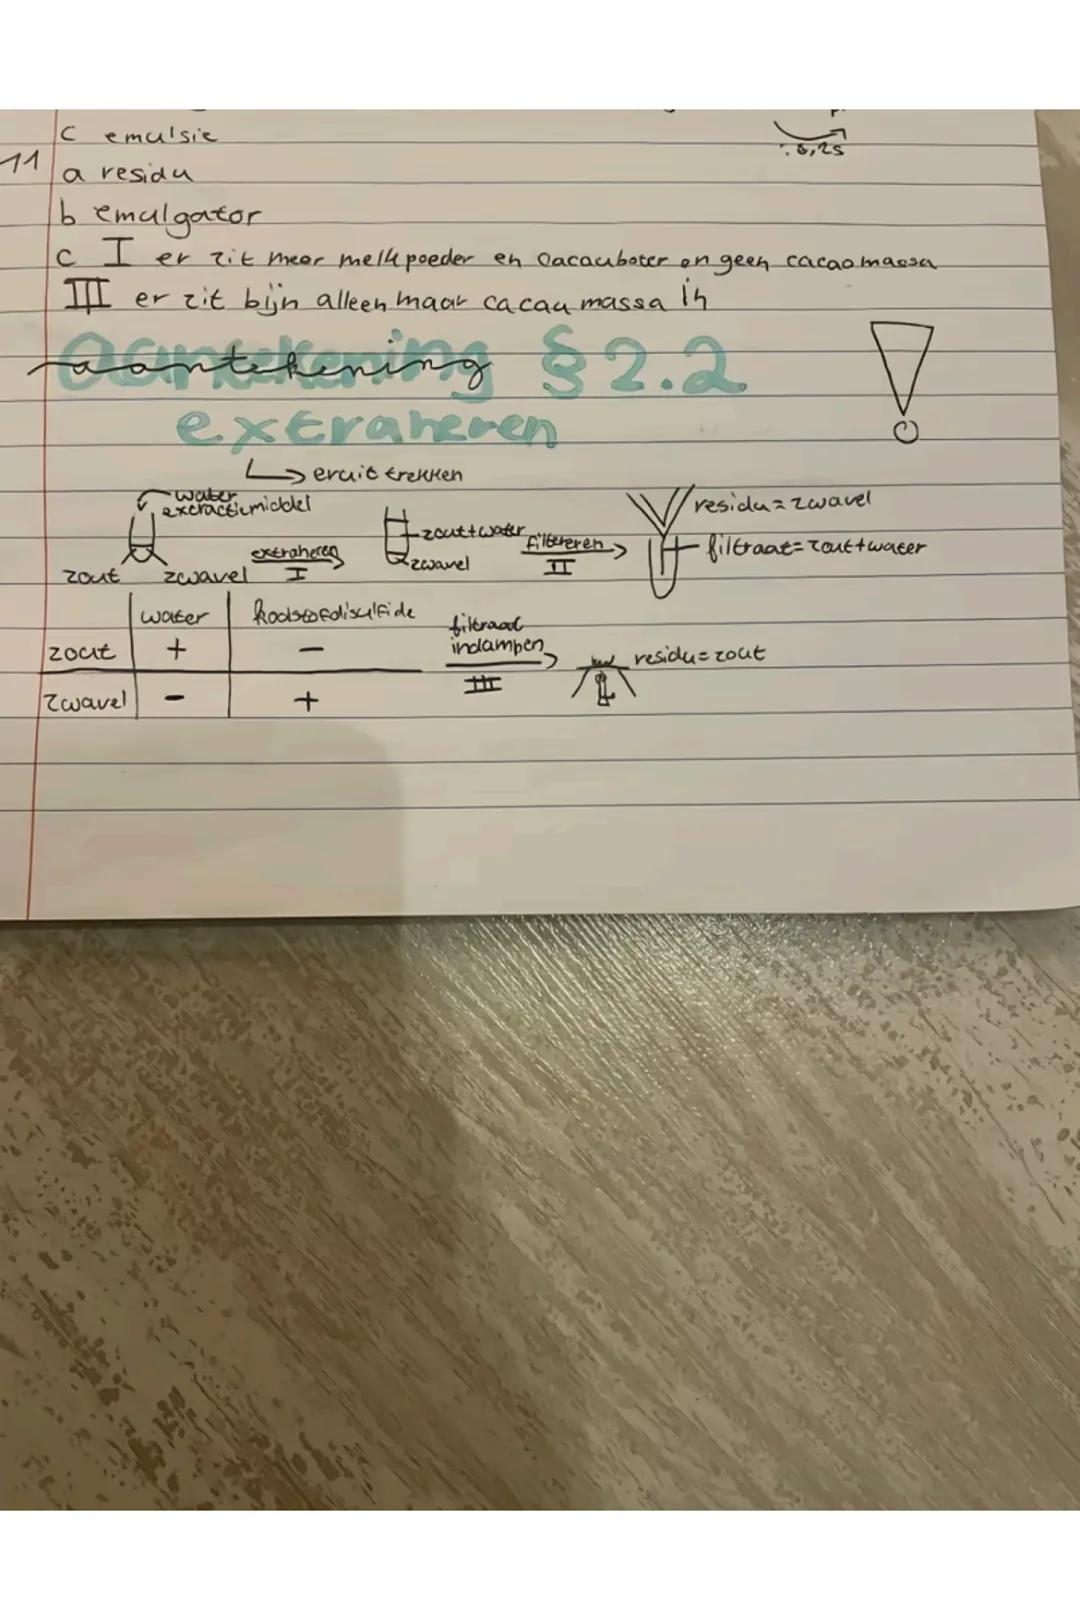 c emulsie
: 8,25
11
a residu
b emulgator
c I er zit meer melkpoeder en cacauboter en geen cacaomassa
III er zit bijn alleen maar cacau massa in
aantekening § 2.2
extraheren
↳ eruit trekken
water
extractiemiddel
zout zwavel
extraheren
I
zout+water
zwavel
filtereren
II
residu = zwavel
filtraat = zout+water
water koolstofdisulfide
zout + -
zwavel - +
filtraat
indampen
III
residu = zout